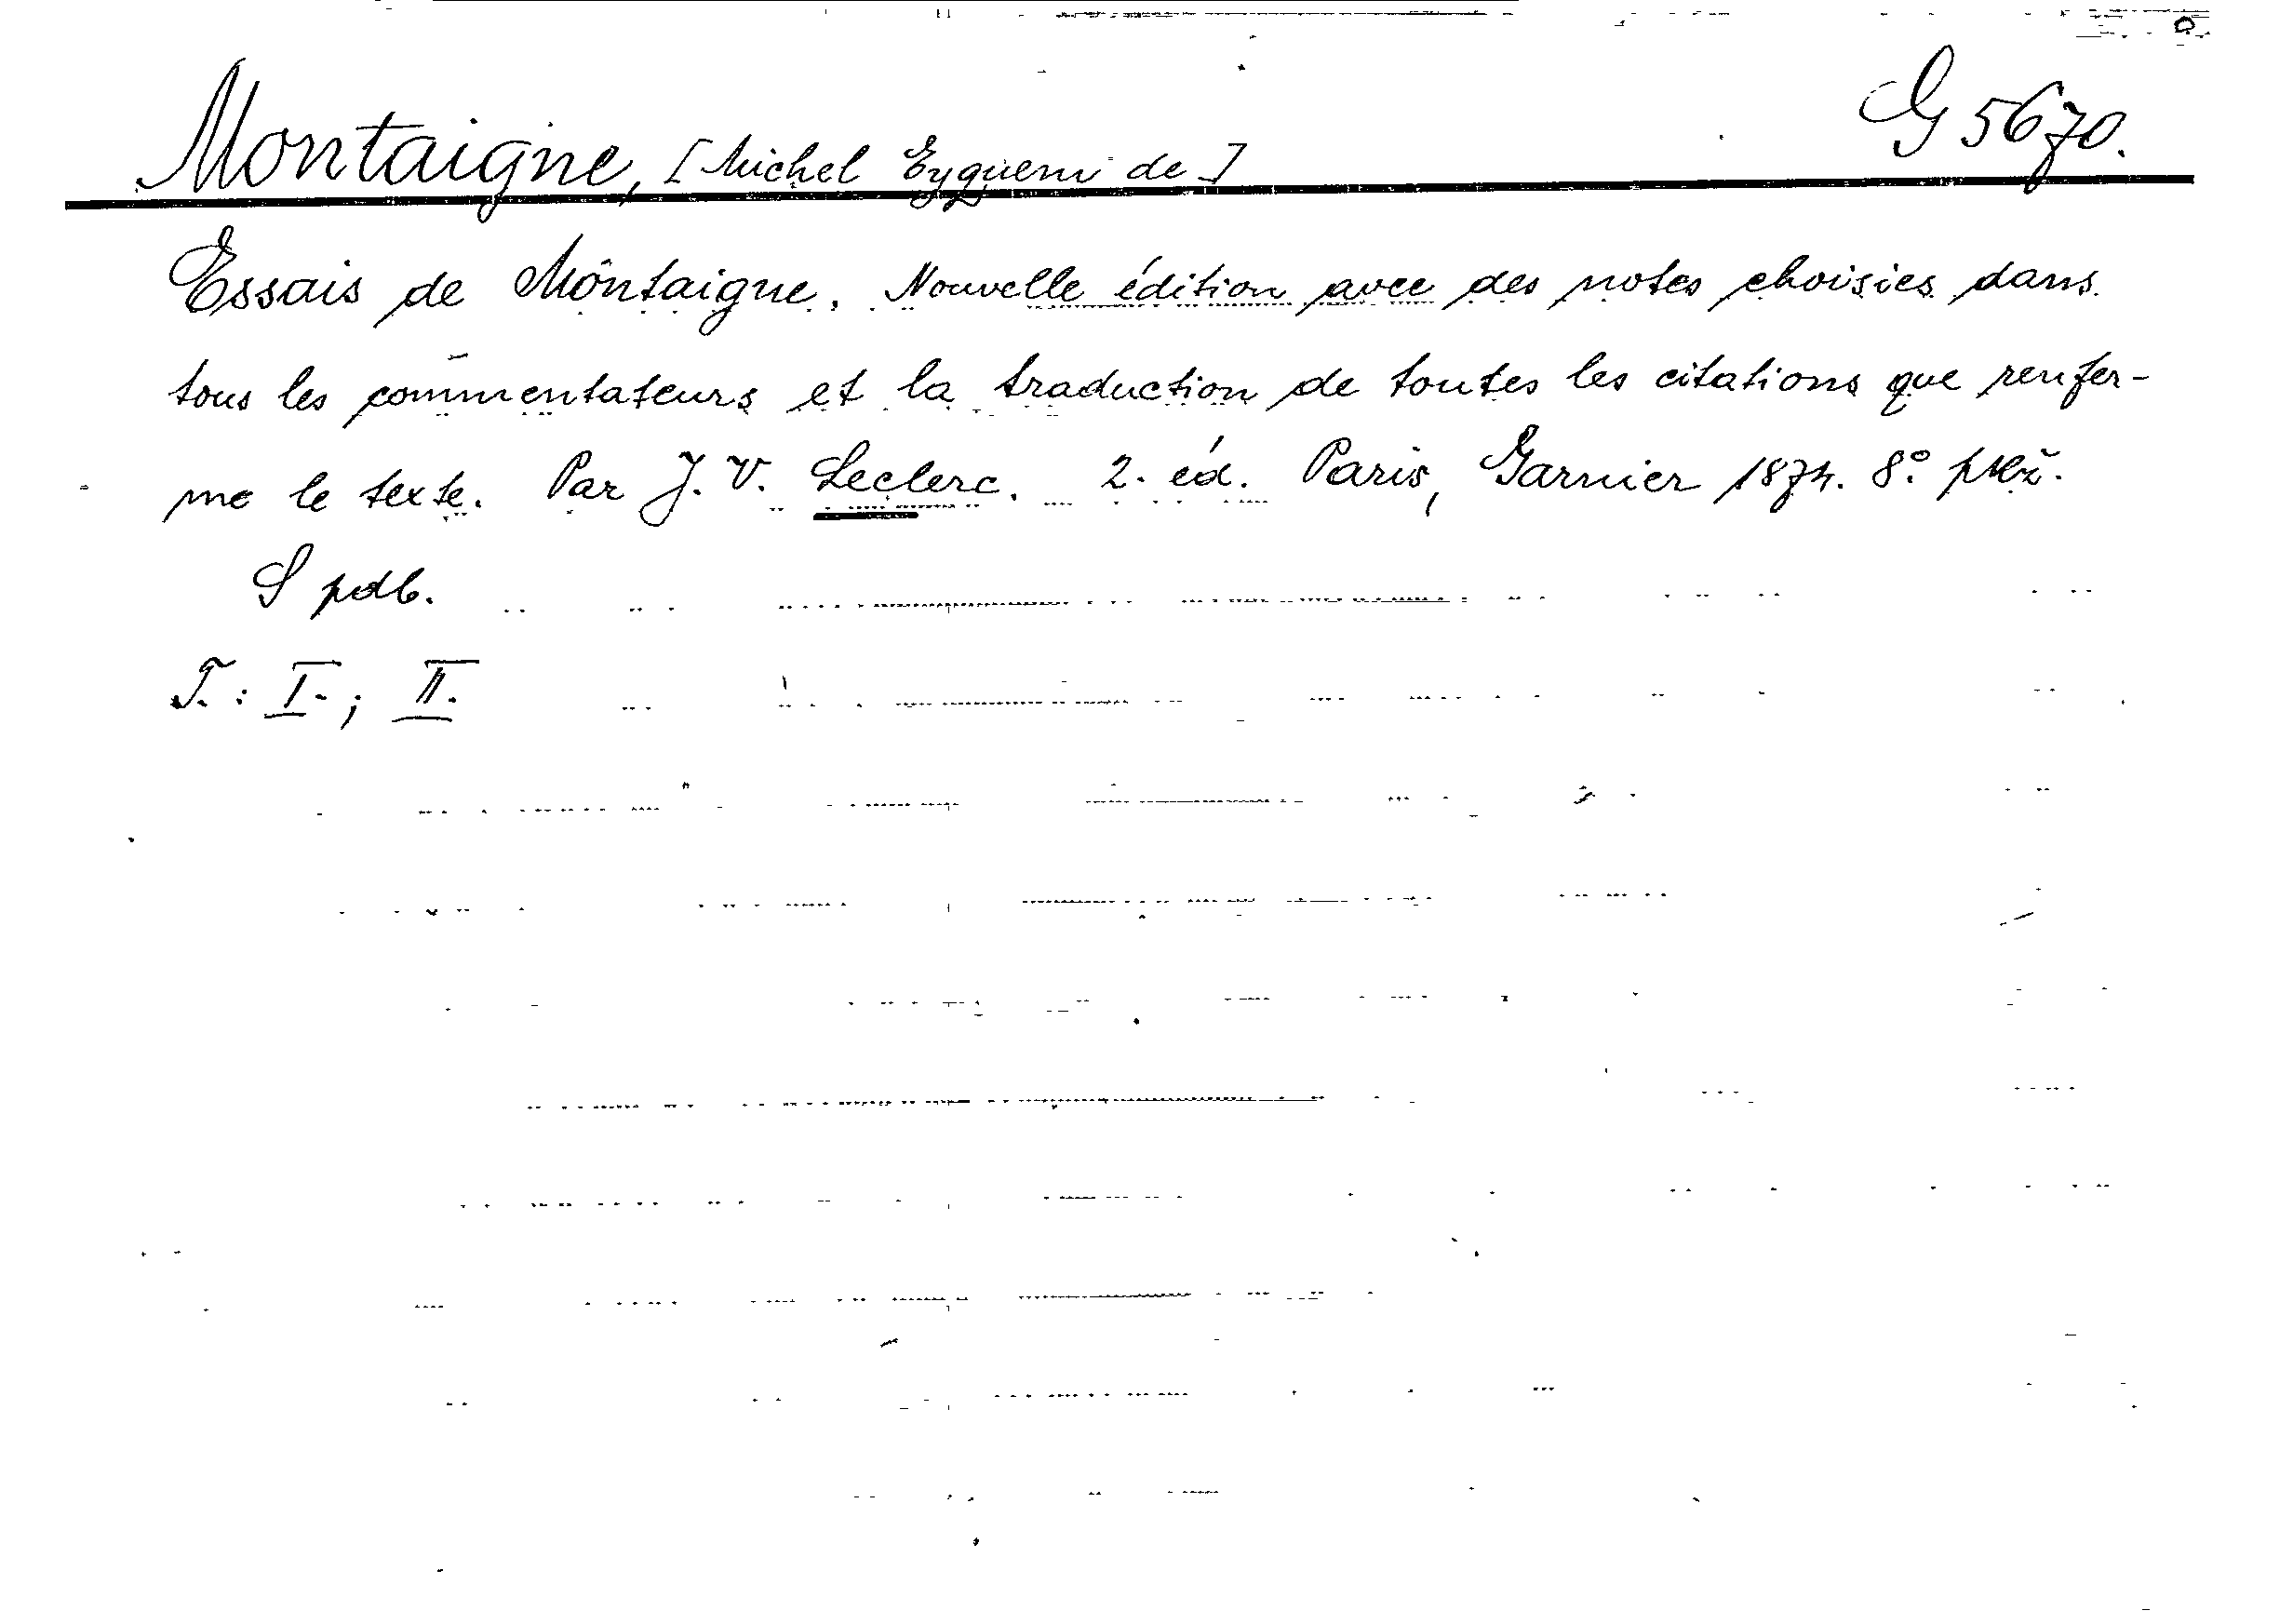 Montaigne, [Michel Eyquem de]
G 5670.
Essais de Montaigne. Nouvelle édition avec des notes choisies dans
tous les commentateurs et la traduction de toutes les citations que renfer-
me le texte. Par J. V. Leclerc. 2. éd. Paris, Garnier 1874. 8° prez.
S pdb.
T.: I.; II.